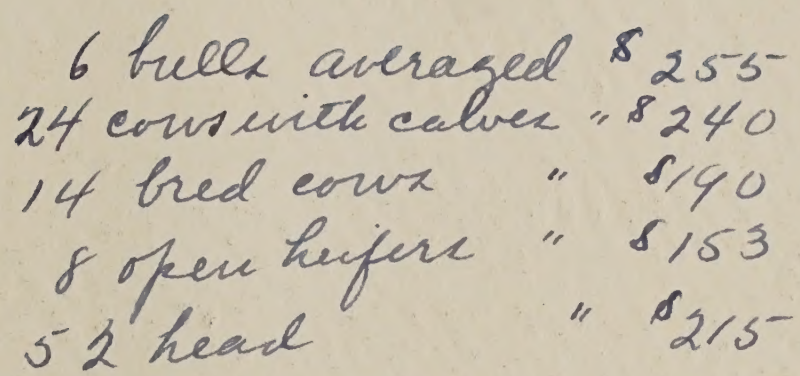 6 bulls averaged $255
24 cows with calves " $240
14 bred cows " $190
8 open heifers " $153
52 head " $215